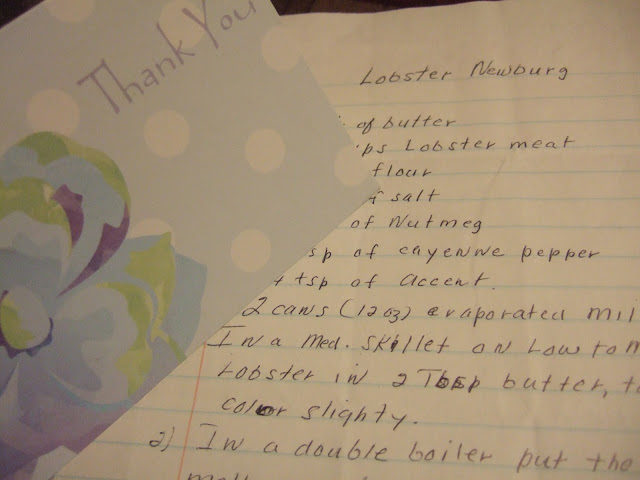 Thank You
Lobster Newburg
of butter
Lobster meat
flour
salt
of Nutmeg
of cayenne pepper
tsp of Accent.
2 cans (12oz) evaporated
In a Med. skillet on Low to
Lobster in 2 Tbsp butter,
color slighty.
2) In a double boiler put the